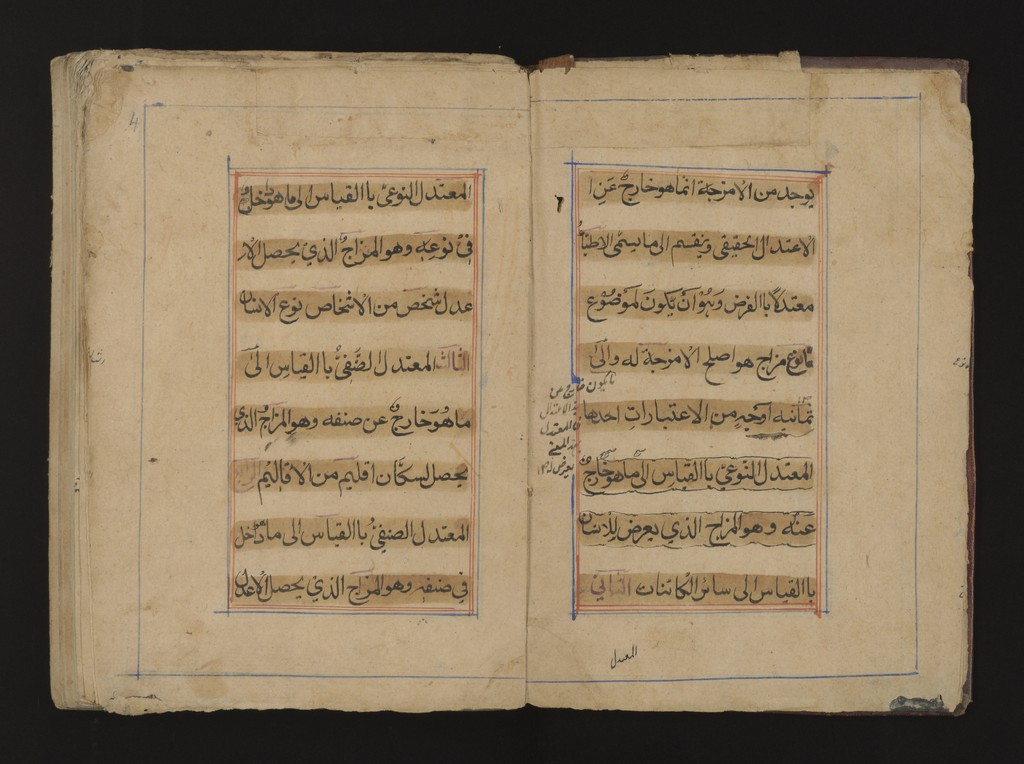 يوجد من الامزجة انما هو خارج عن ا
الاعتدال الحقيقى وينقسم الى ما يسمى الاطباء
معتدلا باالفرض وهو ان يكون لموضوع
مزاج هو اصلح الامزجة له والى
ثمانية اوجه من الاعتبارات احدها
المعتدل النوعى باالقياس الى ما هو خارج
عنه وهو المزاج الذي يعرض للانسان
باالقياس الى سائر الكائنات الثاني
المعتدل
المعتدل النوعى باالقياس الى ما هو داخل
فى نوعه وهو المزاج الذي يحصل لا
عدل شخص من الاشخاص نوع الانسان
الثالث المعتدل الصنفى باالقياس الى
ما هو خارج عن صنفه وهو المزاج الذي
يحصل لسكان اقليم من الاقاليم
المعتدل الصنفى باالقياس الى ما داخل
في صنفه وهو المزاج الذي يحصل لاعدل
4